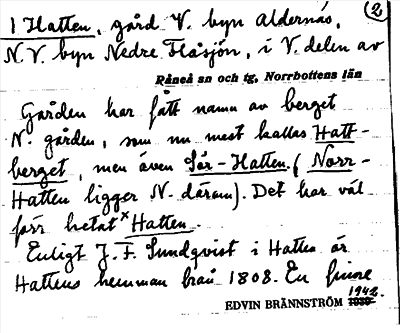 1 Hatten, gård V. byn Aldernäs, (2)
N.V. byn Nedre Flåsjön, i V. delen av
Råneå sn och tg, Norrbottens län
Gården har fått namn av berget
N. gården, som nu mest kallas Hatt-
berget, men även Sör-Hatten. (Norr-
Hatten ligger N. därom). Det har väl
förr hetat ˣHatten.
Enligt J. F. Sundqvist i Hatten är
Hattens hemman från 1808. En finne
1942.
EDVIN BRÄNNSTRÖM 1939.